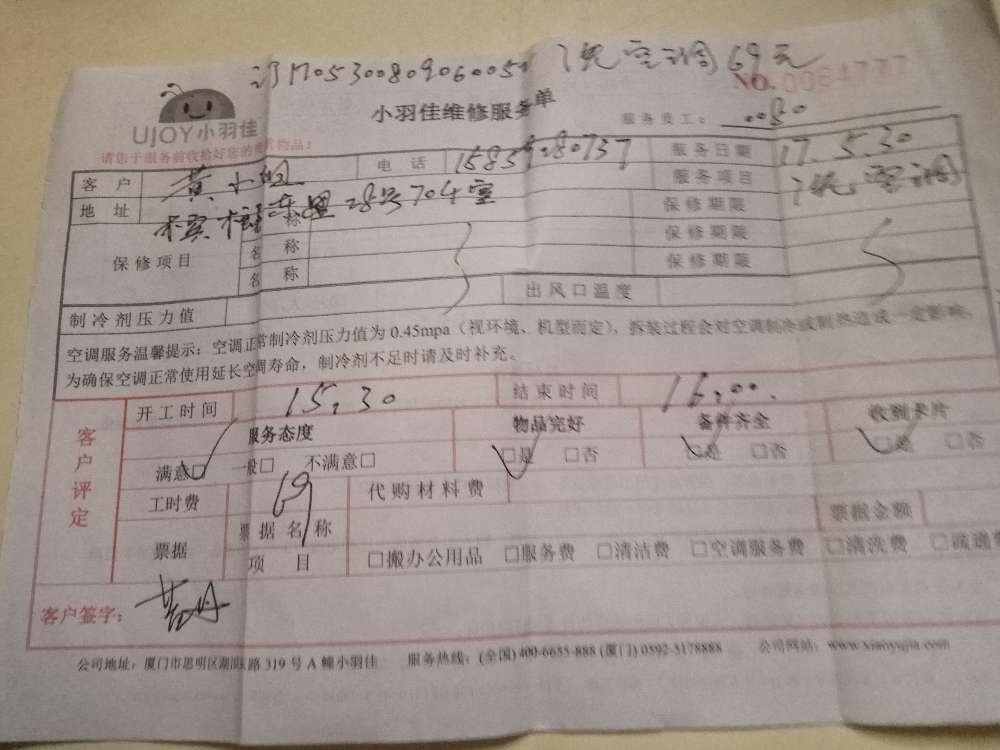 洗空调69元
No.0084777
UJOY小羽佳
小羽佳维修服务单
服务员工： 0080
请您于服务前收拾好您的贵重物品！
客 户 黄小姐 电 话 服务日期 17.5.30
地 址 28号704室 服务项目 洗空调
保修项目 名 称 保修期限
名 称 保修期限
名 称 保修期限
制冷剂压力值 出风口温度
空调服务温馨提示：空调正常制冷剂压力值为 0.45mpa（视环境、机型而定），拆装过程会对空调制冷或制热造成一定影响。
为确保空调正常使用延长空调寿命，制冷剂不足时请及时补充。
客户评定
开工时间 15:30 结束时间 16:00
服务态度 物品完好 备件齐全 收到卡片
满意□ 一般□ 不满意□ □是 □否 □是 □否 □是 □否
工时费 69 代购材料费
票据 票据名称 票据金额
项 目 □搬办公用品 □服务费 □清洁费 □空调服务费 □清洗费 □疏通费
客户签字：
公司地址：厦门市思明区湖滨 路 319 号 A 幢小羽佳 服务热线：(全国) 400-6655-888 (厦门) 0592-5178888 公司网站：www.xiaoyujia.com